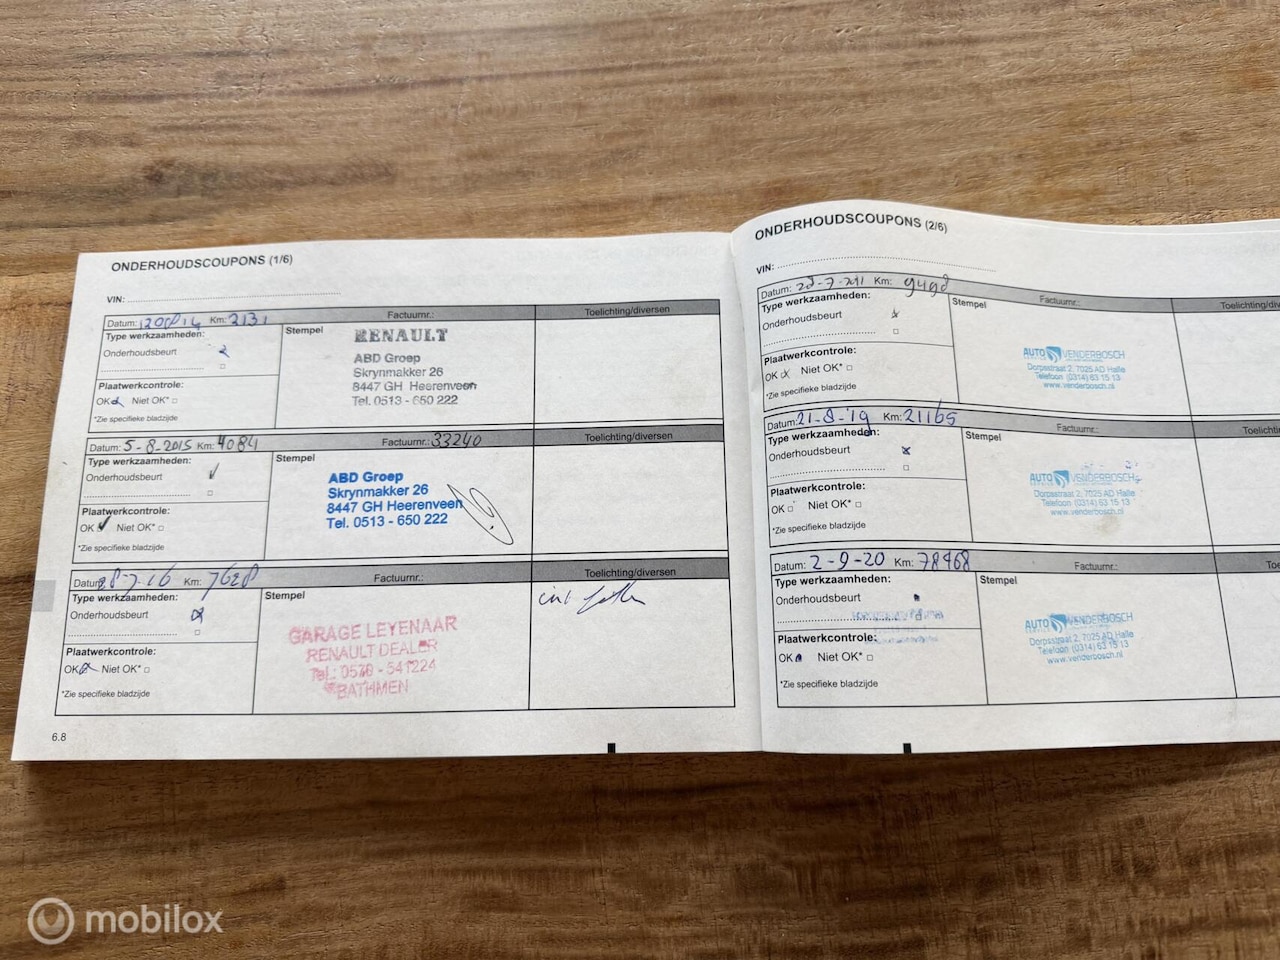 ONDERHOUDSCOUPONS (1/6)
VIN:
Datum: Km: 2131 Factuurnr.: Toelichting/diversen
Type werkzaamheden:
Onderhoudsbeurt
Plaatwerkcontrole:
OK Niet OK*
*Zie specifieke bladzijde
Stempel
RENAULT
ABD Groep
Skrynmakker 26
8447 GH Heerenveen
Tel. 0513 - 650 222
Datum: 5-8-2015 Km: 4084 Factuurnr.: 33240 Toelichting/diversen
Type werkzaamheden:
Onderhoudsbeurt
Plaatwerkcontrole:
OK Niet OK*
*Zie specifieke bladzijde
Stempel
ABD Groep
Skrynmakker 26
8447 GH Heerenveen
Tel. 0513 - 650 222
Datum: 28-7-16 Km: 7628 Factuurnr.: Toelichting/diversen
Type werkzaamheden:
Onderhoudsbeurt
Plaatwerkcontrole:
OK Niet OK*
*Zie specifieke bladzijde
Stempel
GARAGE LEYENAAR
RENAULT DEALER
Tel.: 0570 - 541224
BATHMEN
6.8
ONDERHOUDSCOUPONS (2/6)
VIN:
Datum: Km: Factuurnr.:
Type werkzaamheden:
Onderhoudsbeurt
Plaatwerkcontrole:
OK Niet OK*
*Zie specifieke bladzijde
Stempel
AUTO VENDERBOSCH
Dorpsstraat 2, 7025 AD Halle
Telefoon (0314) 63 15 13
www.venderbosch.nl
Datum: 21-8-'19 Km: 21165 Factuurnr.:
Type werkzaamheden:
Onderhoudsbeurt
Plaatwerkcontrole:
OK Niet OK*
*Zie specifieke bladzijde
Stempel
AUTO VENDERBOSCH
Dorpsstraat 2, 7025 AD Halle
Telefoon (0314) 63 15 13
www.venderbosch.nl
Datum: 2-9-20 Km: 78468 Factuurnr.:
Type werkzaamheden:
Onderhoudsbeurt
Plaatwerkcontrole:
OK Niet OK*
*Zie specifieke bladzijde
Stempel
AUTO VENDERBOSCH
Dorpsstraat 2, 7025 AD Halle
Telefoon (0314) 63 15 13
www.venderbosch.nl
mobilox